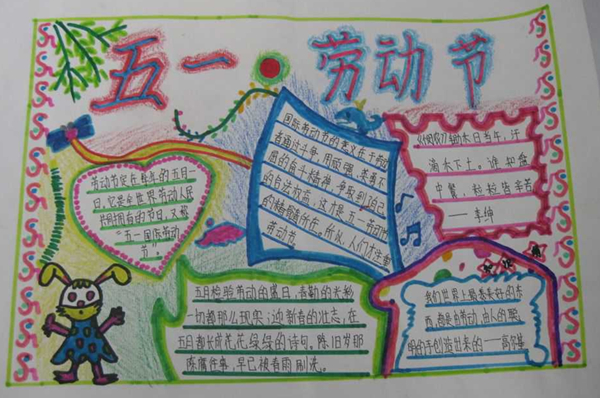 五一 劳动节
劳动节定在每年的五月一
日。它是全世界劳动人民
共同拥有的节日，又称
“五一国际劳动
节”。
国际劳动节的意义在于劳动
者通过斗争，用顽强、英勇不
屈的奋斗精神，争取到自己
的合法权益
所在。所以，人们才注重
劳动节。
锄禾日当午，汗
滴禾下土。谁知盘
中餐，粒粒皆辛苦
——李绅
五月检验劳动的盛日，春勤的
一切都那么现实；迎新者的壮志，在
五月都长成花花绿绿的诗句，陈旧岁那
陈腐往事，早已被春雨刷洗。
我们世界上最美好的东
西，都是由劳动、由人的聪
明的手创造出来的——高尔基